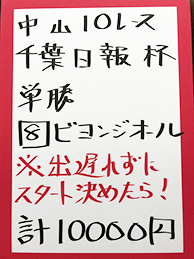 中山10レース
千葉日報杯
単勝
8ビヨンジオール
※出遅れずに
スタート決めたら!
計10000円